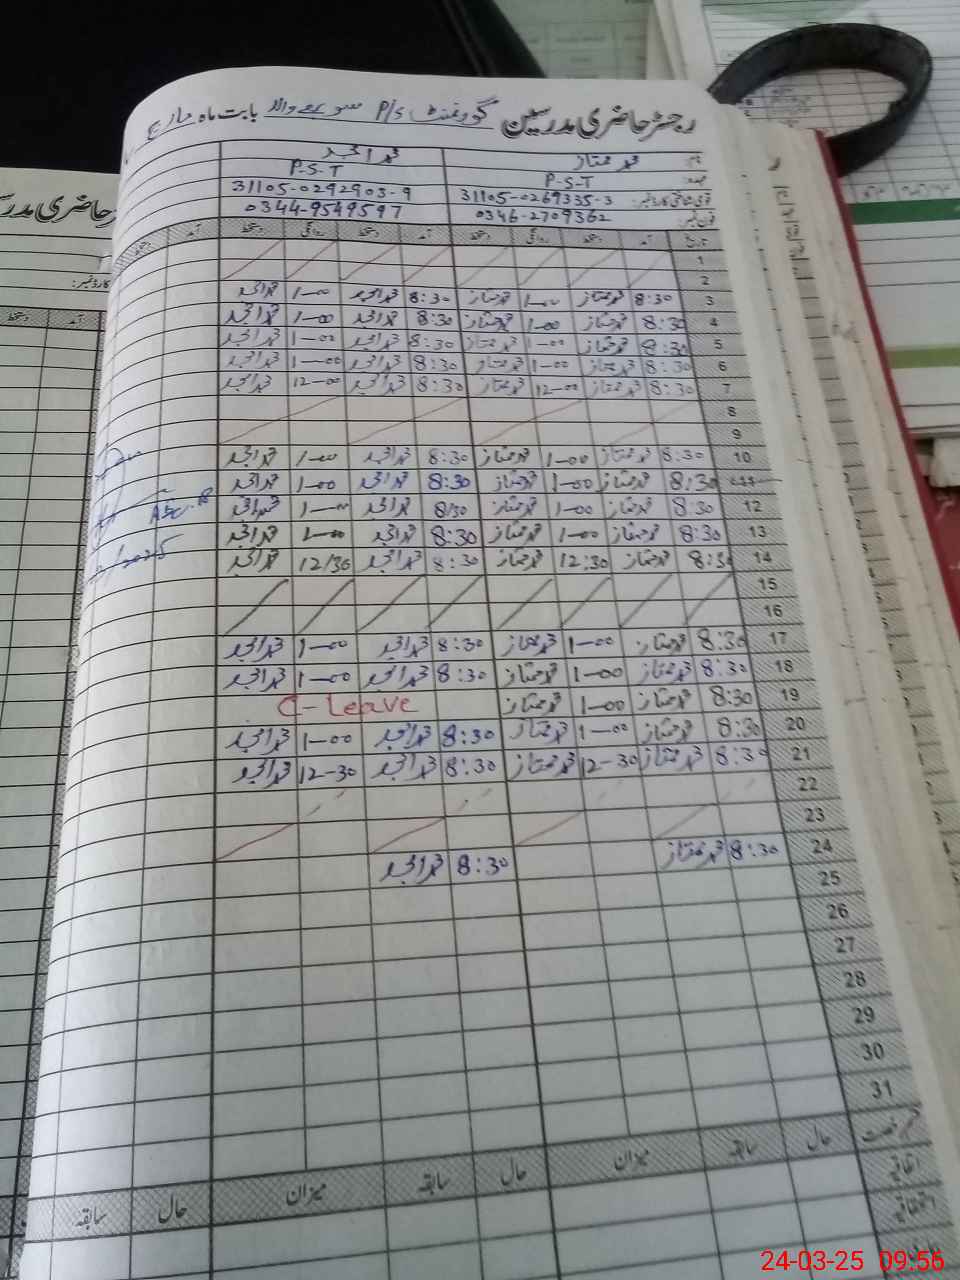 رجسٹر حاضری مدرسین گورنمنٹ P/S والا بابت ماہ مارچ
نام محمد ممتاز محمد امجد
عہدہ P-S-T P-S-T
قومی شناختی کارڈ نمبر 31105-0269335-3 31105-0292903-9
فون نمبر 0346-2709362 0344-9549597
تاریخ آمد دستخط روانگی دستخط آمد دستخط روانگی دستخط آمد دستخط
1
2
3 8:30 محمد ممتاز 1-00 محمد ممتاز 8:30 محمد امجد 1-00 محمد امجد
4 8:30 محمد ممتاز 1-00 محمد ممتاز 8:30 محمد امجد 1-00 محمد امجد
5 8:30 محمد ممتاز 1-00 محمد ممتاز 8:30 محمد امجد 1-00 محمد امجد
6 8:30 محمد ممتاز 1-00 محمد ممتاز 8:30 محمد امجد 1-00 محمد امجد
7 8:30 محمد ممتاز 12-00 محمد ممتاز 8:30 محمد امجد 12-00 محمد امجد
8
9
10 8:30 محمد ممتاز 1-00 محمد ممتاز 8:30 محمد امجد 1-00 محمد امجد
11 8:30 محمد ممتاز 1-00 محمد ممتاز 8:30 محمد امجد 1-00 محمد امجد
12 8:30 محمد ممتاز 1-00 محمد ممتاز 8/30 محمد امجد 1-00 محمد امجد
13 8:30 محمد ممتاز 1-00 محمد ممتاز 8:30 محمد امجد 1-00 محمد امجد
14 8:30 محمد ممتاز 12:30 محمد ممتاز 8:30 محمد امجد 12/30 محمد امجد
15
16
17 8:30 محمد ممتاز 1-00 محمد ممتاز 8:30 محمد امجد 1-00 محمد امجد
18 8:30 محمد ممتاز 1-00 محمد ممتاز 8:30 محمد امجد 1-00 محمد امجد
19 8:30 محمد ممتاز 1-00 محمد ممتاز C-Leave
20 8:30 محمد ممتاز 1-00 محمد ممتاز 8:30 محمد امجد 1-00 محمد امجد
21 8:30 محمد ممتاز 12-30 محمد ممتاز 8:30 محمد امجد 12-30 محمد امجد
22
23
24 8:30 محمد ممتاز 8:30 محمد امجد
25
26
27
28
29
30
31
قسم رخصت حال سابقہ میزان حال سابقہ میزان حال سابقہ
اتفاقیہ
استحقاقیہ
حاضری مدرسین
کارڈ نمبر:
آمد دستخط
24-03-25 09:56